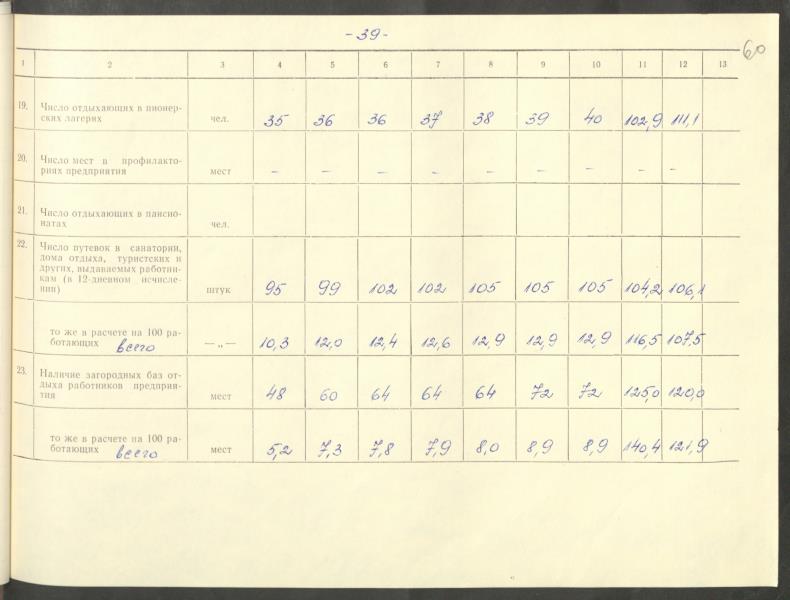 -39-
60
1 2 3 4 5 6 7 8 9 10 11 12 13
19. Число отдыхающих в пионер-
ских лагерях чел. 35 36 36 37 38 39 40 102,9 111,1
20. Число мест в профилакто-
риях предприятия мест – – – – – – – – –
21. Число отдыхающих в пансио-
натах чел.
22. Число путевок в санатории,
дома отдыха, туристских и
других, выдаваемых работни-
кам (в 12-дневном исчисле-
нии) штук 95 99 102 102 105 105 105 104,2 106,1
то же в расчете на 100 ра-
ботающих всего —„— 10,3 12,0 12,4 12,6 12,9 12,9 12,9 116,5 107,5
23. Наличие загородных баз от-
дыха работников предприя-
тия мест 48 60 64 64 64 72 72 125,0 120,0
то же в расчете на 100 ра-
ботающих всего мест 5,2 7,3 7,8 7,9 8,0 8,9 8,9 140,4 121,9